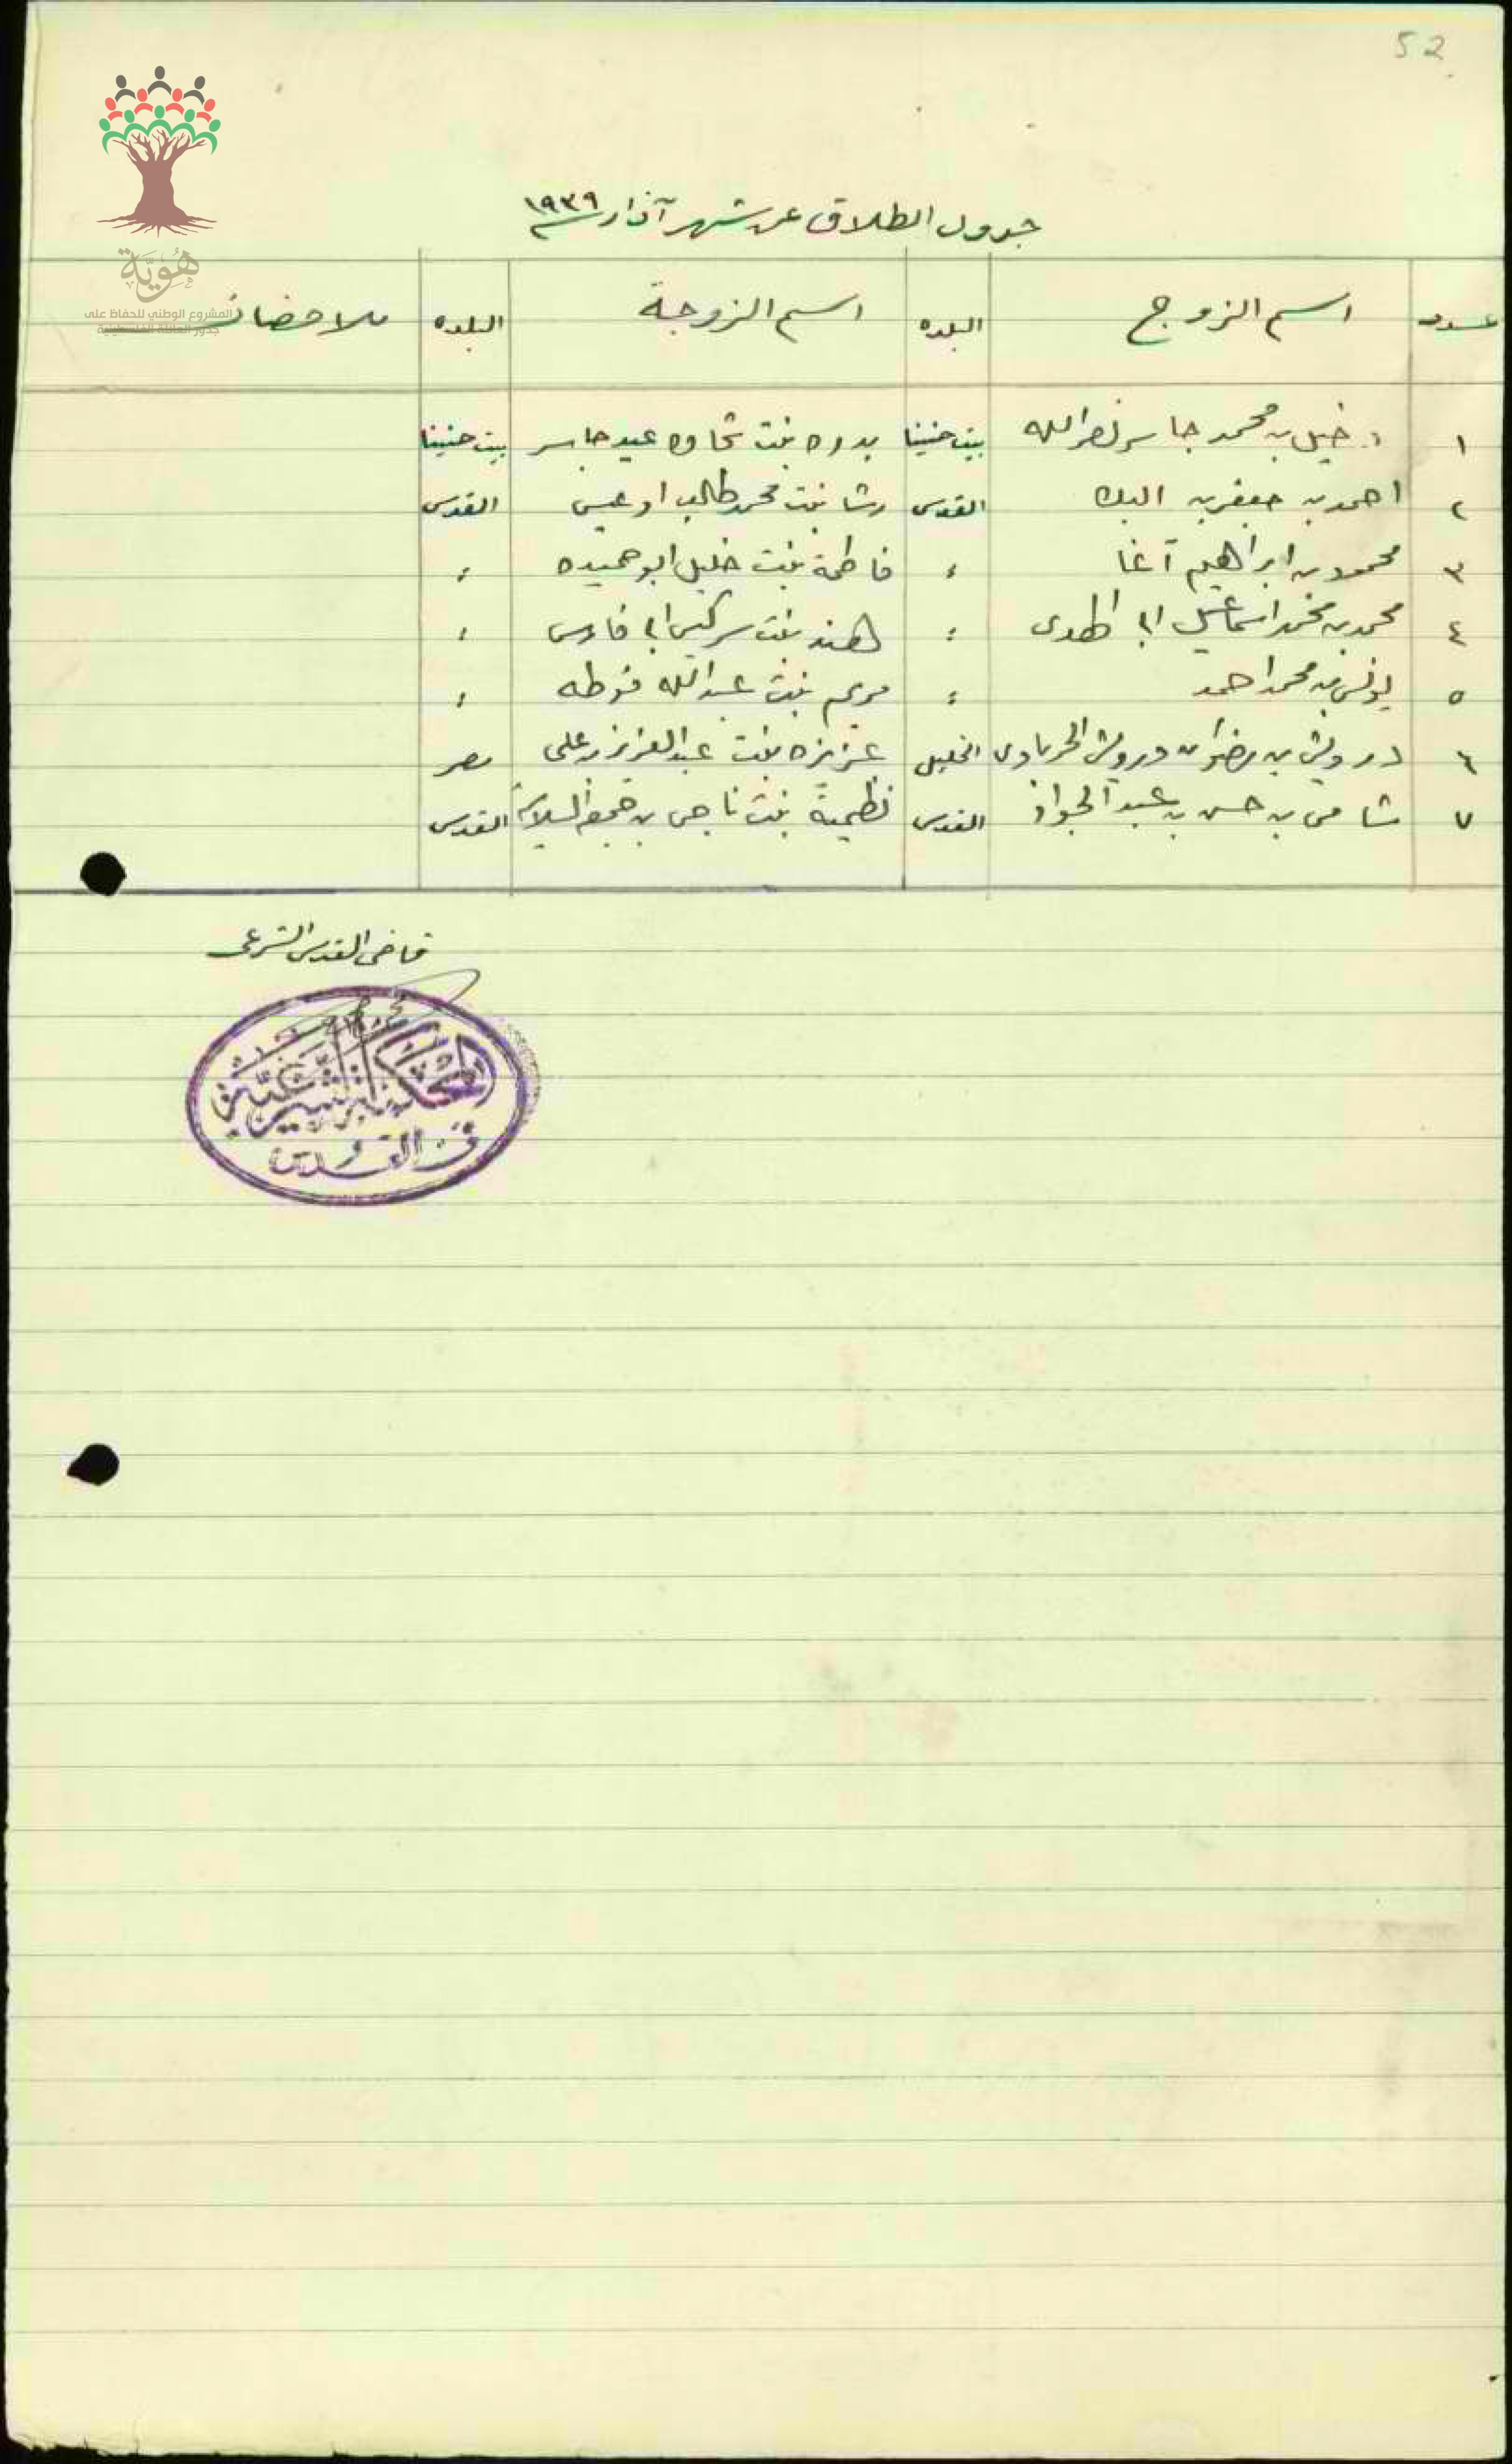 52
جدول الطلاق عن شهر آذار سنة ١٩٣٩
هُوِيَّة
المشروع الوطني للحفاظ على
جذور العائلة الفلسطينية
عدد اسم الزوج البلده اسم الزوجة البلده ملاحضات
١ دخيل بن محمد جاسر نصرالله بيت حنينا بدره بنت شحاده عيد جاسر بيت حنينا
٢ احمد بن جعفر بن القدس رشا بنت محمد طالب القدس
٣ محمود بن ابراهيم آغا ، فاطمة بنت خليل ابو حميده ،
٤ محمد بن محمد اسماعيل ابو ، هند بنت سركيس ابو فارس ،
٥ يونس بن محمد احمد ، مريم بنت عبدالله فوطه ،
٦ درويش بن رضوان درويش الحرباوى الخليل عزيزه بنت عبدالعزيز علي مصر
٧ شامي بن حسن بن عبد الجواد القدس نظمية بنت ناجي بن القدس
قاضي القدس الشرعي
المحكمة الشرعية
في القدس